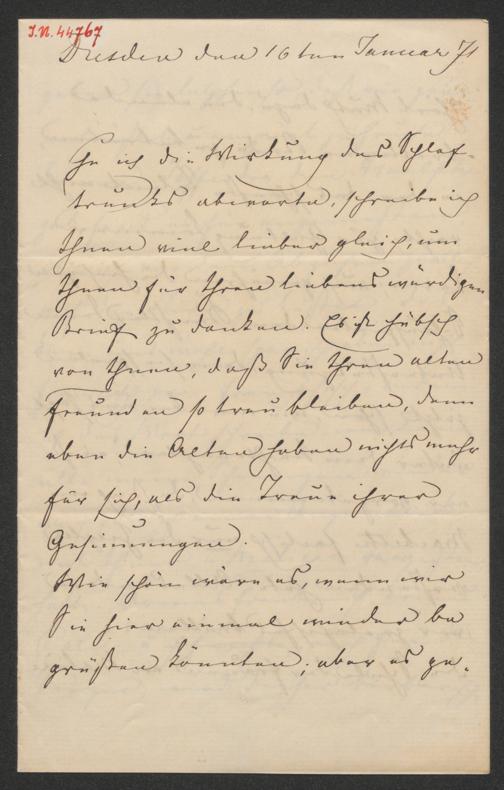 I.N. 44767
Dresden den 16ten Januar 71
Ehe ich die Wirkung des Schlaf-
trunks abwarte, schreibe ich
Ihnen viel lieber gleich, um
Ihnen für Ihren liebenswürdigen
Brief zu danken. Es ist hübsch
von Ihnen, daß Sie Ihren alten
Freunden so treu bleiben, denn
eben die Alten haben nichts mehr
für sich, als die Treue ihrer
Gesinnungen.
Wie schön wäre es, wenn wir
Sie hier einmal wieder be
grüßen könnten; aber es ge-